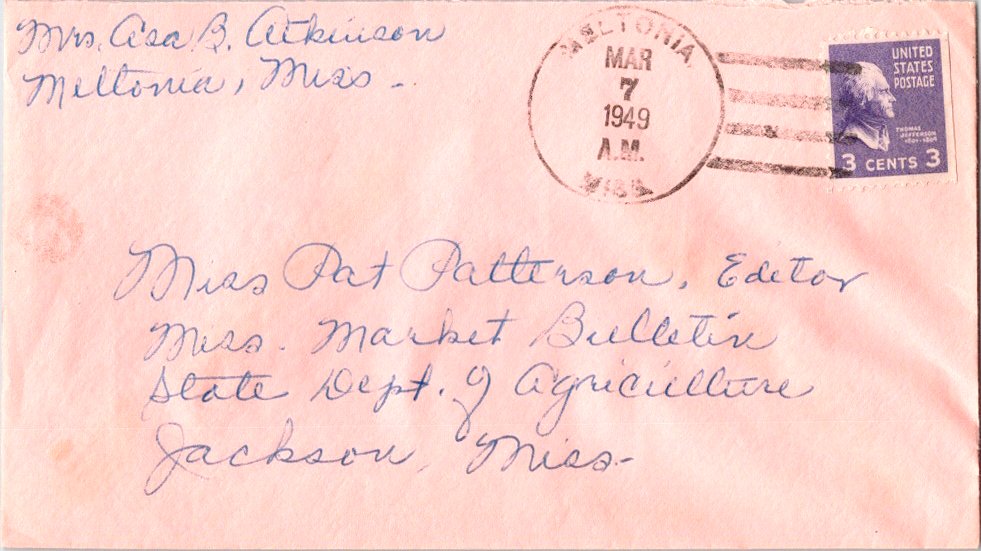 Mrs. Asa B. Atkinson
Meltonia, Miss.
MELTONIA,
MAR
7
1949
A.M.
MISS.
UNITED
STATES
POSTAGE
THOMAS
JEFFERSON
1801-1809
3 CENTS 3
Miss Pat Patterson, Editor
Miss. Market Bulletin
State Dept. of Agriculture
Jackson, Miss.